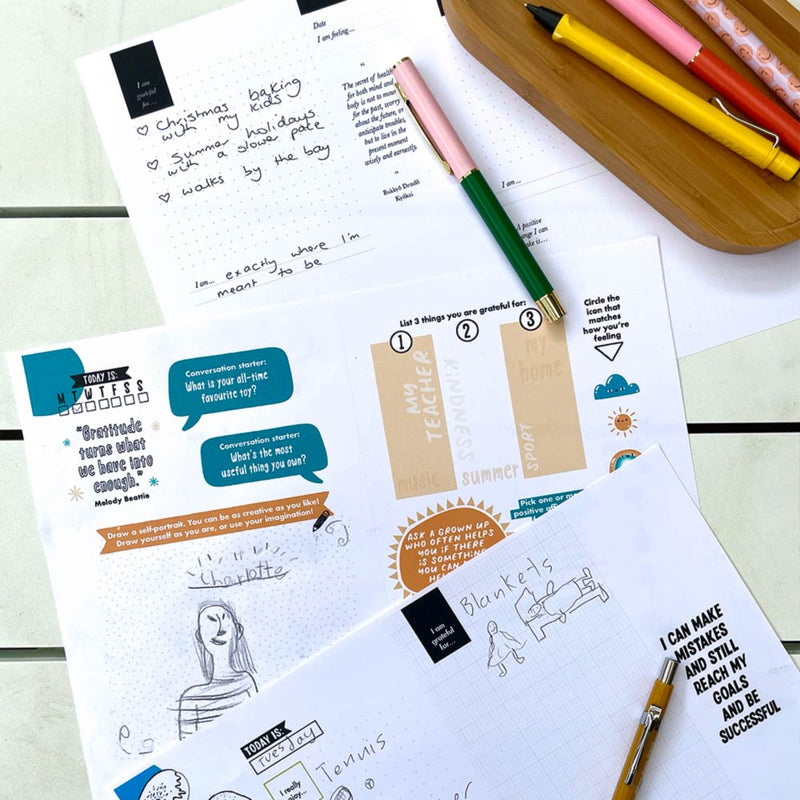 Date
I am feeling...
I am
grateful
for...
Christmas baking
with my kids
Summer holidays
with a slower pace
walks by the bay
"
The secret of health
for both mind and
body is not to mourn
for the past, worry
about the future, or
anticipate troubles,
but to live in the
present moment
wisely and earnestly.
"
Bukkyō Dendō
Kyōkai
I am... exactly where I'm
meant to be
I am...
A positive
TODAY IS:
M T W T F S S
"Gratitude
turns what
we have into
enough."
Melody Beattie
Conversation starter:
What is your all-time
favourite toy?
Conversation starter:
What's the most
useful thing you own?
Draw a self-portrait. You can be as creative as you like!
Draw yourself as you are, or use your imagination!
Charlotte
List 3 things you are grateful for:
1 2 3
MY
TEACHER
KINDNESS
my
home
SPORT
music
summer
Circle the
icon that
matches
how you're
feeling
Pick one or
positive
ASK A GROWN UP
WHO OFTEN HELPS
YOU IF THERE
IS SOMETHING
YOU CAN
I am
grateful
for...
Blankets
I CAN MAKE
MISTAKES
AND STILL
REACH MY
GOALS
AND BE
SUCCESSFUL
TODAY IS:
Tuesday
I really
enjoy...
Tennis